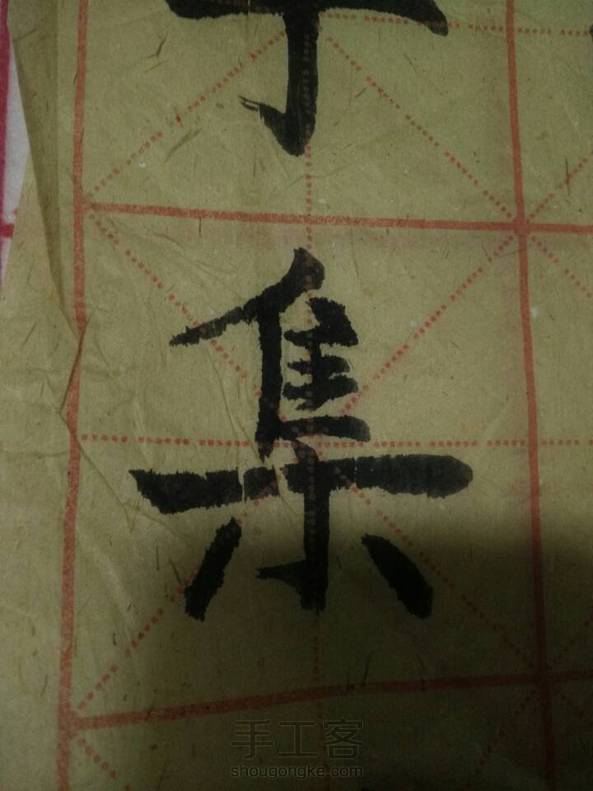 集
手工客
shougongke.com